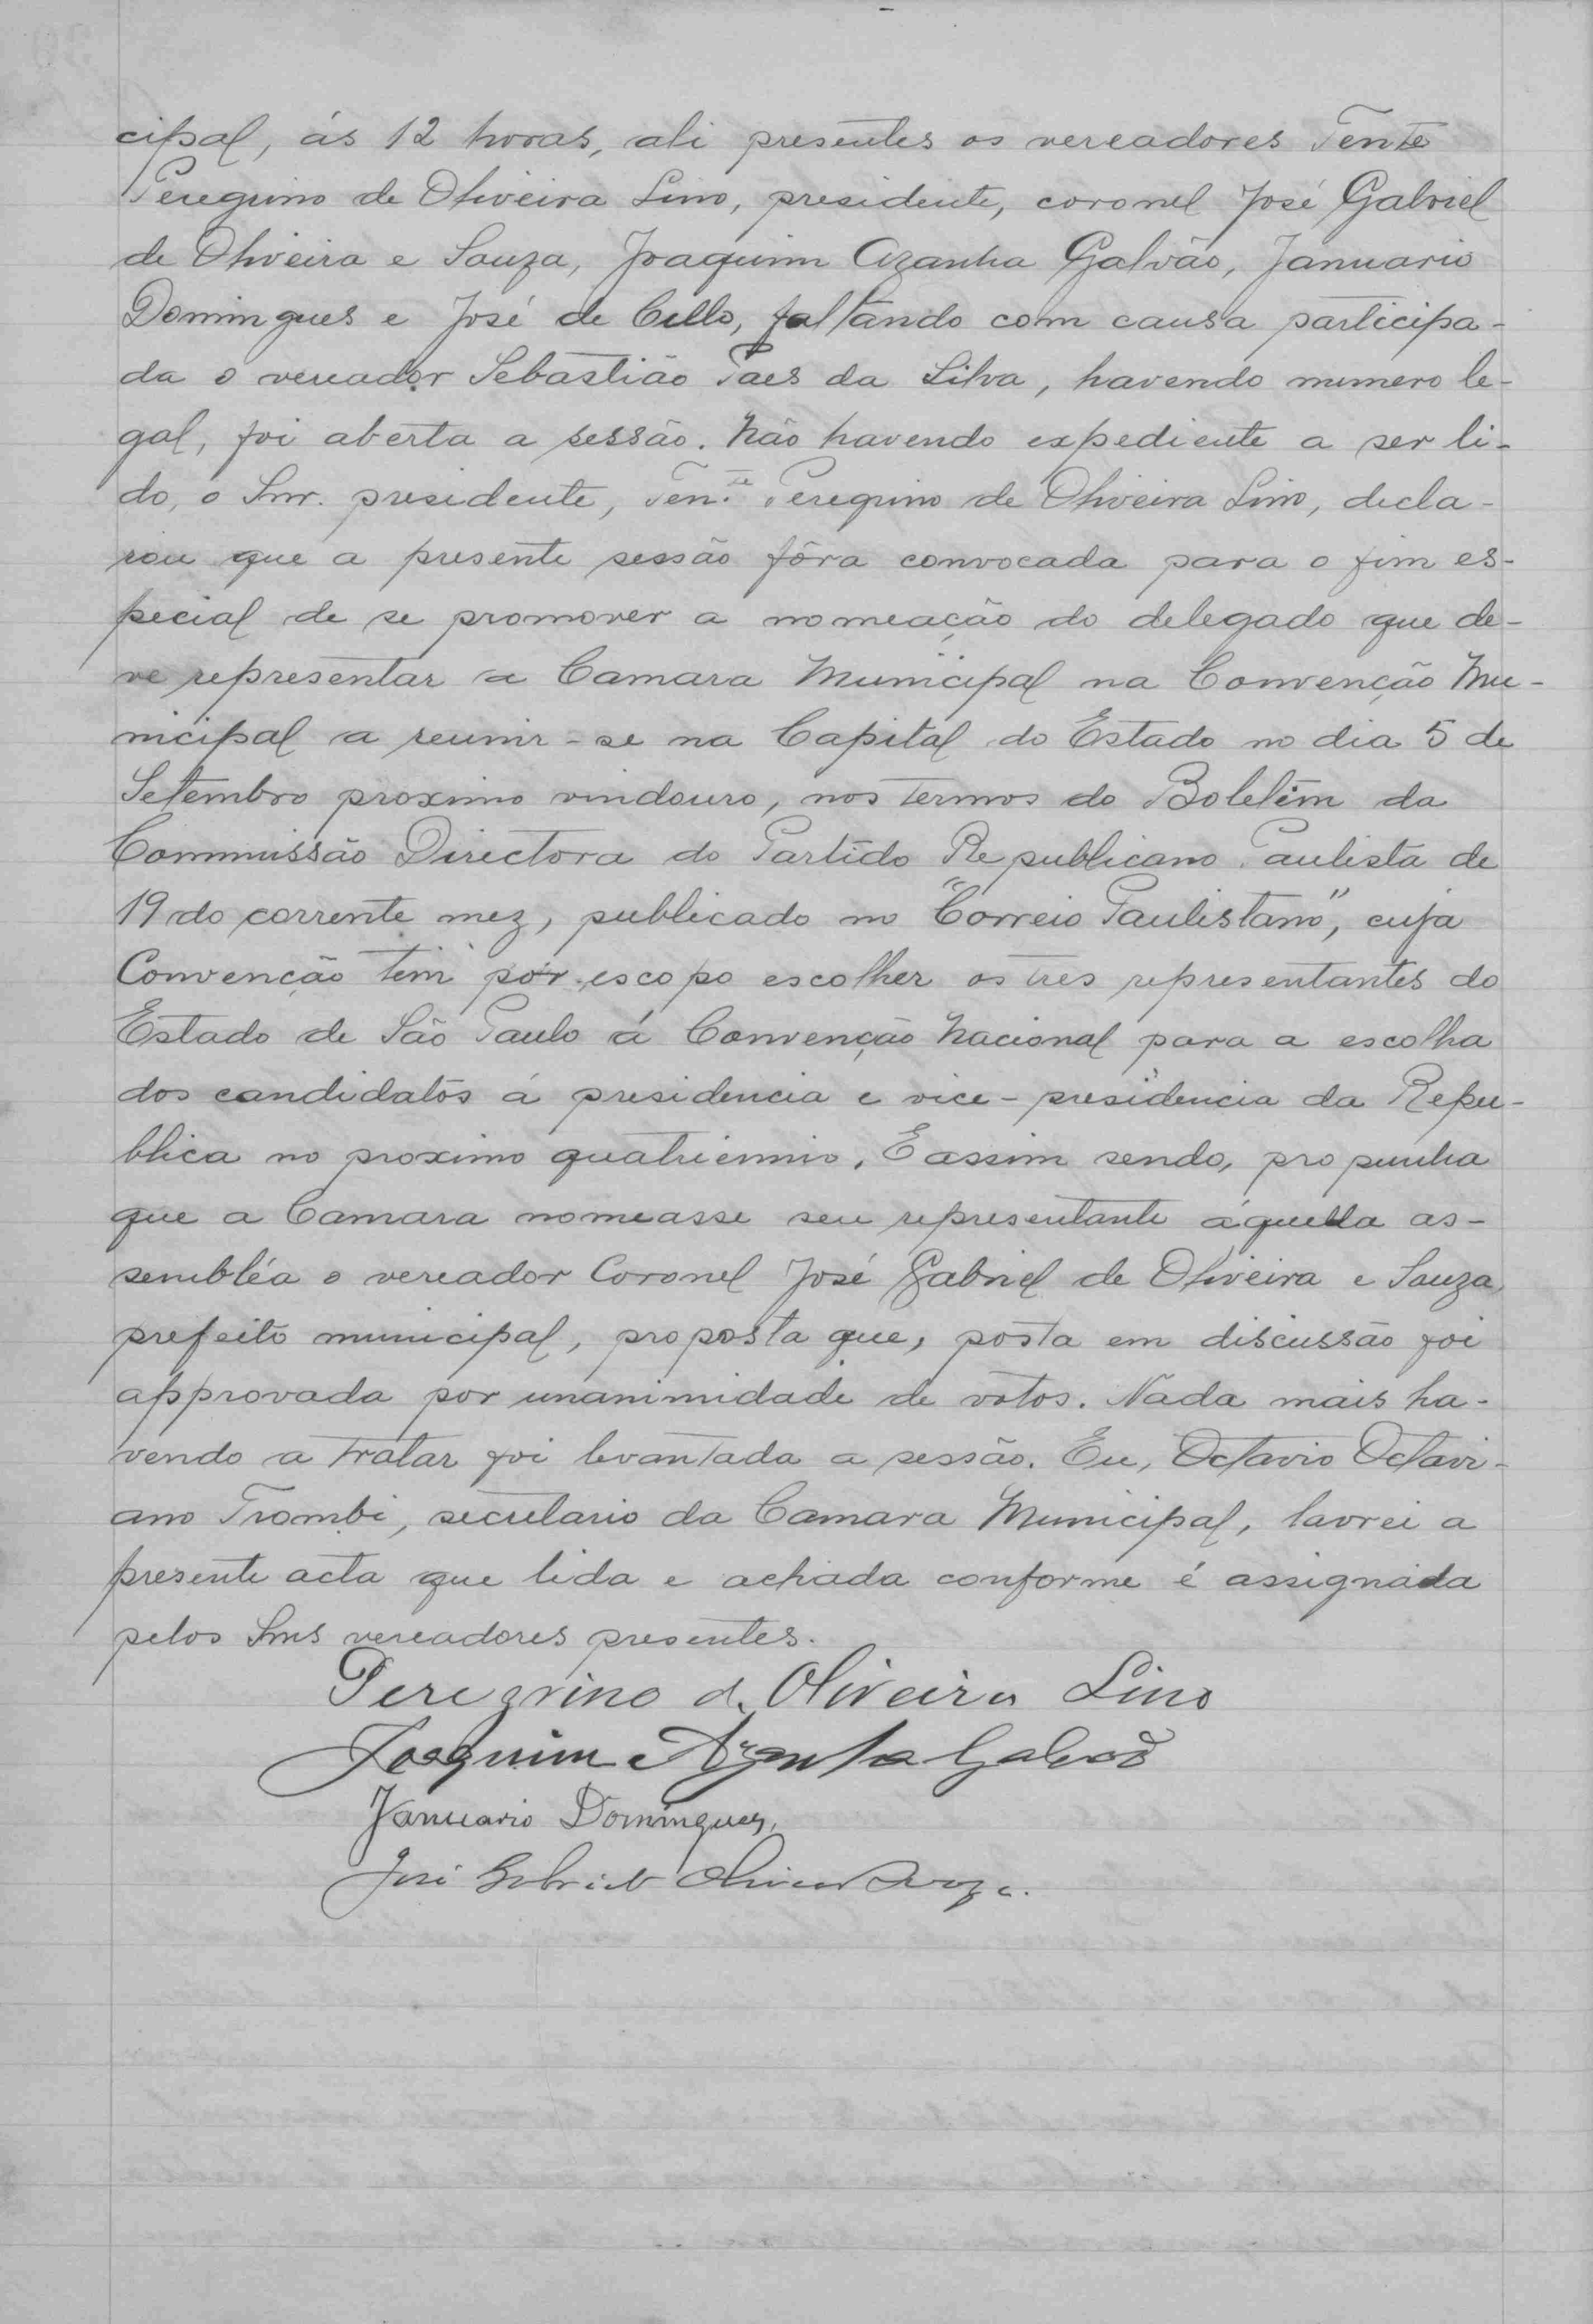 cipal, ás 12 horas, ali presentes os vereadores Tente
Peregrino de Oliveira Lino, presidente, coronel José Gabriel
de Oliveira e Souza, Joaquim Azanha Galvão, Januario
Domingues e José de Cillo, faltando com causa participa-
da o vereador Sebastião Paes da Silva, havendo numero le-
gal, foi aberta a sessão. Não havendo expediente a ser li-
do, o Snr. presidente, Ten.te Peregrino de Oliveira Lino, decla-
rou que a presente sessão fôra convocada para o fim es-
pecial de se promover a nomeação do delegado que de-
ve representar a Camara Municipal na Convenção Mu-
nicipal a reunir-se na Capital do Estado no dia 5 de
Setembro proximo vindouro, nos termos do Boletim da
Commissão Directora do Partido Republicano Paulista de
19 do corrente mez, publicado no "Correio Paulistano", cuja
Convenção tem por escopo escolher os tres representantes do
Estado de São Paulo á Convenção Nacional para a escolha
dos candidatos á presidencia e vice-presidencia da Repu-
blica no proximo quatriennio. E assim sendo, propunha
que a Camara nomeasse seu representante áquella as-
sembléa o vereador Coronel José Gabriel de Oliveira e Souza,
prefeito municipal, proposta que, posta em discussão foi
approvada por unanimidade de votos. Nada mais ha-
vendo a tratar foi levantada a sessão. Eu, Octavio Octavi-
ano Trombi, secretario da Camara Municipal, lavrei a
presente acta que lida e achada conforme é assignada
pelos Snrs vereadores presentes.
Peregrino d. Oliveira Lino
Joaquim Azanha Galvão
Januario Domingues,
José Gabriel Oliveira Souza.